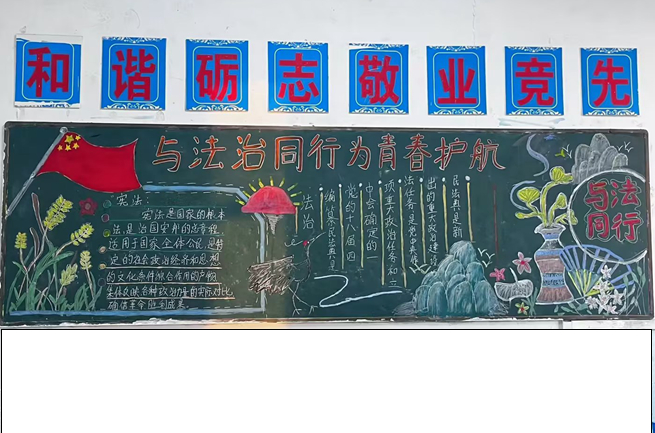 和谐砺志敬业竞先
与法治同行为青春护航
宪法:
宪法是国家的根本
法,是治国安邦的总章程
适用于国家全体公民,是特
定的社会政治经济和思想
的文化条件综合作用的产物
集体反映各种政治力量的实际对比
确认革命胜利成果
法治
编纂民法典是
党的十八届四
中会确定的一
项重大政治任务和立
法任务是党中央作
出的重大政治建设
民法典是新
与法
同行